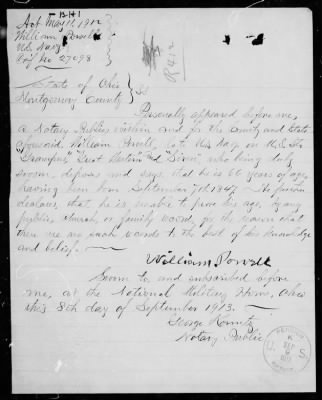 B.H.1
Act May 11, 1912
William Powell
U.S. Navy
Ctf No. 27098
R 412
State of Ohio
Montgomery County } SS
Personally appeared before me,
a Notary Public within and for the County and State
aforesaid, William Powell, late U.S. Navy on U.S. Str.
"Grampus" "Great Western" and who being duly
sworn, deposes and says that he is 66 years of age,
having been born September 7th 1847. He further
declares, that he is unable to prove his age, by any
public, church, or family record, for the reason that
there are no such records to the best of his knowledge
and belief.
William Powell
Sworn to and subscribed before
me, at the National Military Home, Ohio
this 8th day of September 1913.
George
Notary Public
PENSION
U. S.
SEP